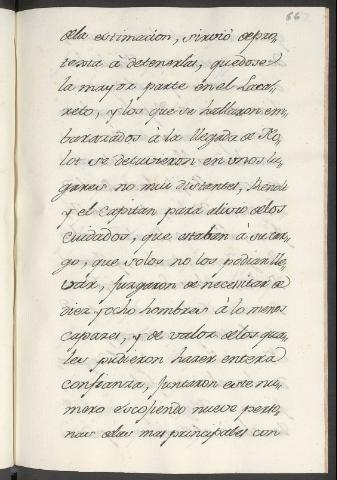 66
dela estimacion, sirvió depro-
tema á detenerla, quedose
la mayor parte en el Laza-
reto, y los que se hallaron em-
barazados à la llegada de Ko-
lot se detuvieron en unos lu-
gares no mui distantes,
y el capitan para alivio delos
cuidados, que estaban á su car-
go, que solos no los podian lle-
vàr, juzgaron de necesitar de
diez yocho hombres á lo menos
capazes, y de valor delos qua-
les pudieron hazer entera
confianza, juntaron este nu-
mero escogiendo nueve perso-
nas delas mas principales con